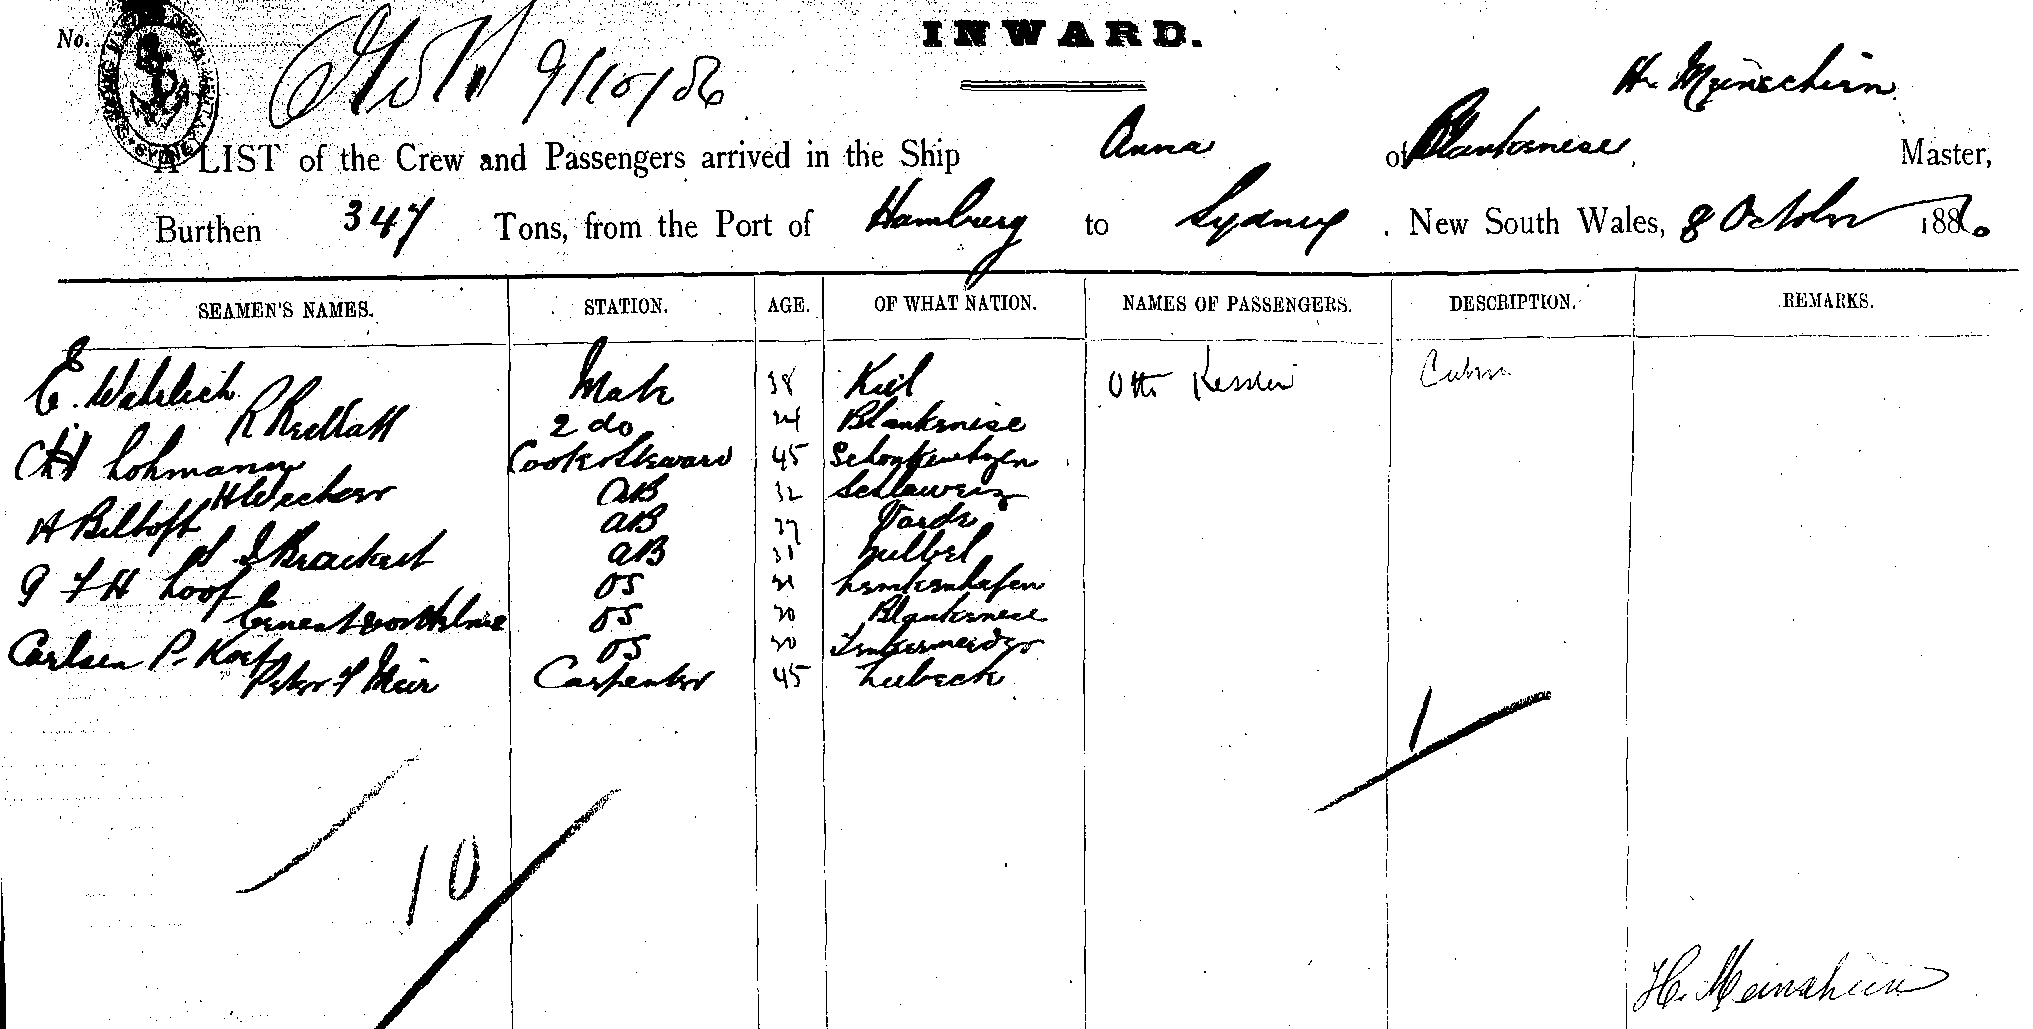 No.
INWARD.
9/10/86
H. Meinschien
A LIST of the Crew and Passengers arrived in the Ship Anna of Blankanese, Master,
Burthen 347 Tons, from the Port of Hamburg to Sydney. New South Wales, 8 October 1886
SEAMEN'S NAMES. STATION. AGE. OF WHAT NATION. NAMES OF PASSENGERS. DESCRIPTION. REMARKS.
E. Wehlich Mate 38 Kiel Otto Kessler Cabin
R 2 do 24 Blankenese
CH Lohmann Cook & Steward 45
H Wecker AB 32
H Biltoft AB 37 Varde
Brackert AB
F H Loof OS
Ernest OS 20 Blankenese
Carlsen P. Koef OS 20
Peter F Meir Carpenter 45 Lubeck
1
10
H. Meinshien